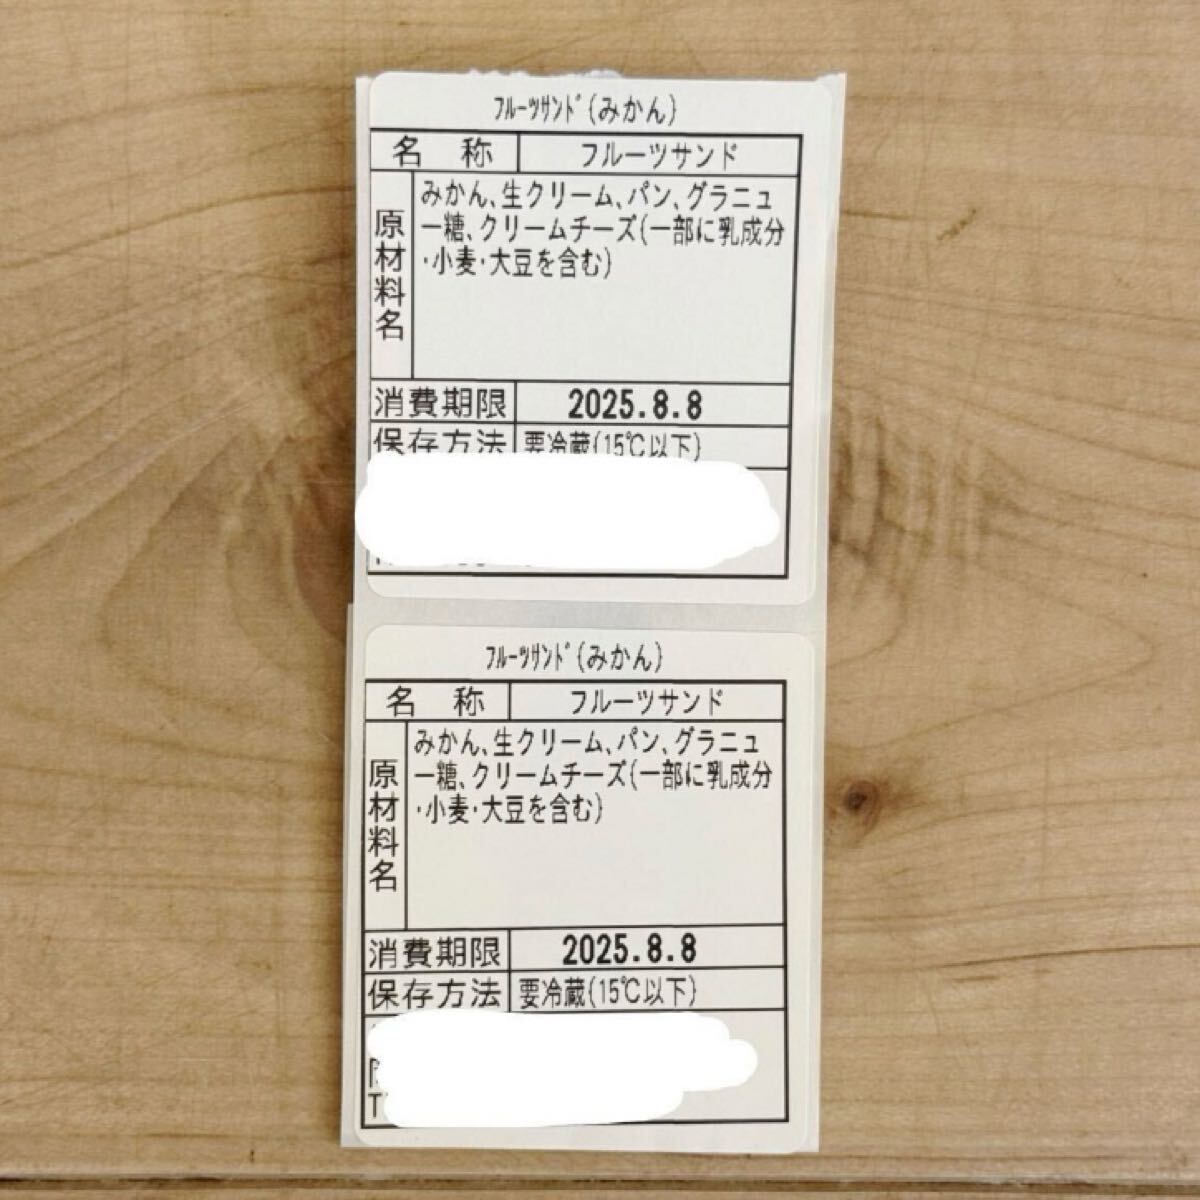 フルーツサンド(みかん)
名 称 フルーツサンド
原材料名
みかん、生クリーム、パン、グラニュ
ー糖、クリームチーズ(一部に乳成分
・小麦・大豆を含む)
消費期限 2025.8.8
保存方法 要冷蔵(15℃以下)
フルーツサンド(みかん)
名 称 フルーツサンド
原材料名
みかん、生クリーム、パン、グラニュ
ー糖、クリームチーズ(一部に乳成分
・小麦・大豆を含む)
消費期限 2025.8.8
保存方法 要冷蔵(15℃以下)